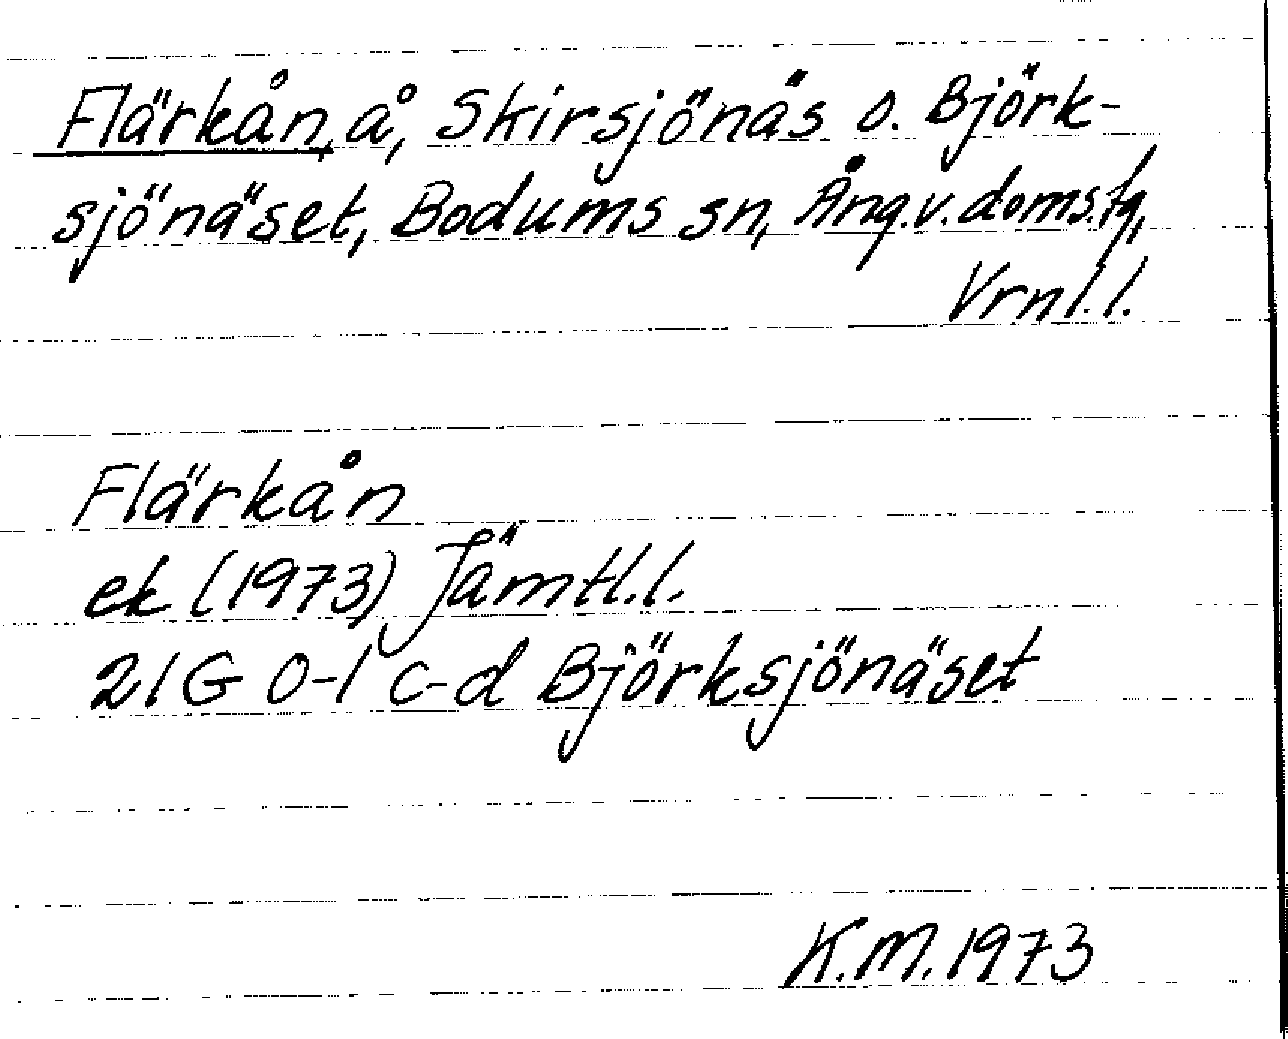 Flärkån, å, Skirsjönäs o. Björk-
sjönäset, Bodums sn, Ång.v.doms.tg,
Vrnl.l.
Flärkån
ek (1973) Jämtl.l.
21G 0-1 c-d Björksjönäset
K.M. 1973